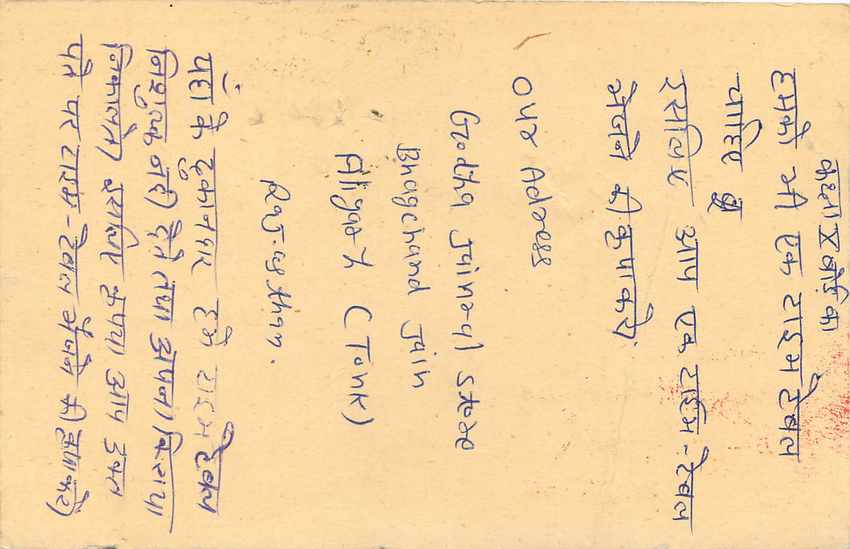 कक्षा X बोर्ड का
हमको भी एक टाइम टेबल
चाहिए
इसलिए आप एक टाईम-टेबल
भेजने की कृपा करें
Our Address
Godha Jainral Store
Bhagchand Jain
Aligarh (Tonk)
Rajasthan.
यहाँ के दूकानदार हमें टाइम टेबल
निशुल्क नहीं देते तथा अपना किराया
निकालते) इसलिए कृपया आप उक्त
पते पर टाइम-टेबल भेजने की कृपा करें)